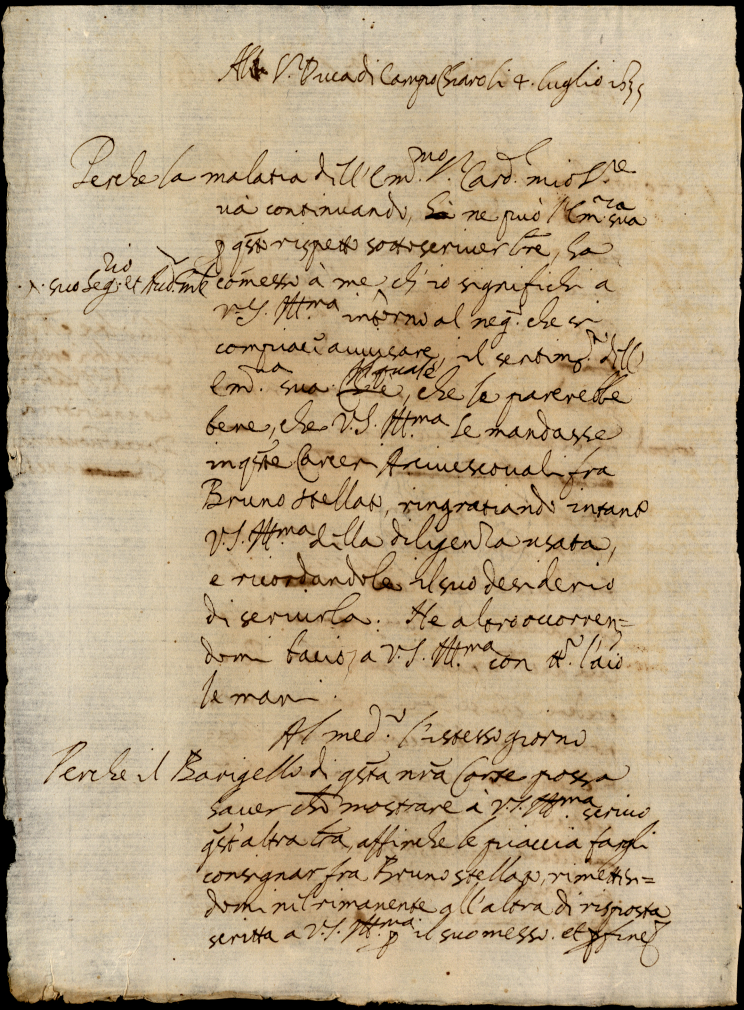 Al S.r Duca di Campochiaro li 4. luglio 1635
Perche la malatia dell'Em.mo S.r Card.l mio S.re
và continuando, ne può l'Em.za sua
p q̃sto rispetto sottoscriver l̃re, ha
comesso à me, ch'io significhi a
suo Seg.rio et Aud.
V.S. Ill.ma intorno al neg.o che si
compiacq̃ avvisare, il sentim.to dell'
Em.za sua il quale è, che le parerebbe
bene, che V.S. Ill.ma le mandasse
in q̃ste Carceri Arcivescovali fra
Bruno Stellato, ringratiando intanto
V.S. Ill.ma della diligenza usata,
e ricordandole il suo desiderio
di servirla. Ne altro occorren=
domi bacio a V.S. Ill.ma con
le mani.
Al med.o l'istesso giorno
Perche il Barigello di q̃sta nr̃a Corte possa
haver che mostrare à V.S. Ill.ma scrivo
q̃st'altra l̃ra, affinche le piaccia fargli
consignar fra Bruno Stellato, rimetten=
domi nel rimanente all'altra di risposta
scritta a V.S. Ill.ma p il suo messo. et p fine